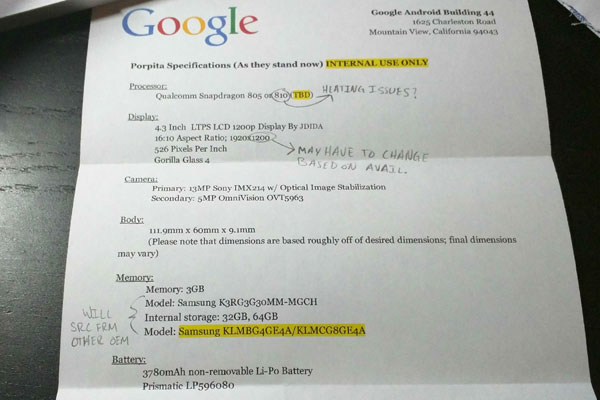 Google
Google Android Building 44
1625 Charleston Road
Mountain View, California 94043
Porpita Specifications (As they stand now) INTERNAL USE ONLY
Processor:
Qualcomm Snapdragon 805 or 810 (TBD) HEATING ISSUES?
Display:
4.3 Inch LTPS LCD 1200p Display By JDIDA
16:10 Aspect Ratio; 1920x1200
526 Pixels Per Inch
Gorilla Glass 4
MAY HAVE TO CHANGE
BASED ON AVAIL.
Camera:
Primary: 13MP Sony IMX214 w/ Optical Image Stabilization
Secondary: 5MP OmniVision OVT5963
Body:
111.9mm x 60mm x 9.1mm
(Please note that dimensions are based roughly off of desired dimensions; final dimensions
may vary)
Memory:
Memory: 3GB
Model: Samsung K3RG3G30MM-MGCH
Internal storage: 32GB, 64GB
Model: Samsung KLMBG4GE4A/KLMCG8GE4A
WILL
SRC FRM
OTHER OEM
Battery:
3780mAh non-removable Li-Po Battery
Prismatic LP596080